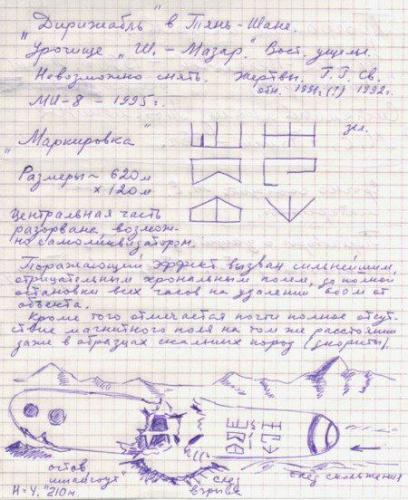 „Дирижабль" в Тянь-Шане.
Урочище „Ш.-Мазар". Вост. ущелье.
Невозможно снять. Жертвы. Г.Г. Св.
отн. 1991г.(?) 1992г.
МИ-8 – 1995г.
„Маркировка"
зел.
Размеры ~ 620м
х 120м
Центральная часть
разорвана, возмож-
но самоликвидатором.
Поражающий эффект вызван сильнейшим,
отрицательным хрональным полем, до полной
остановки всех часов на удалении 800м от
объекта.
Кроме того отмечается почти полное отсут-
ствие магнитного поля на том же расстоянии
даже в образцах скальных пород (диориты).
след
взрыва
след скольжения
"210м